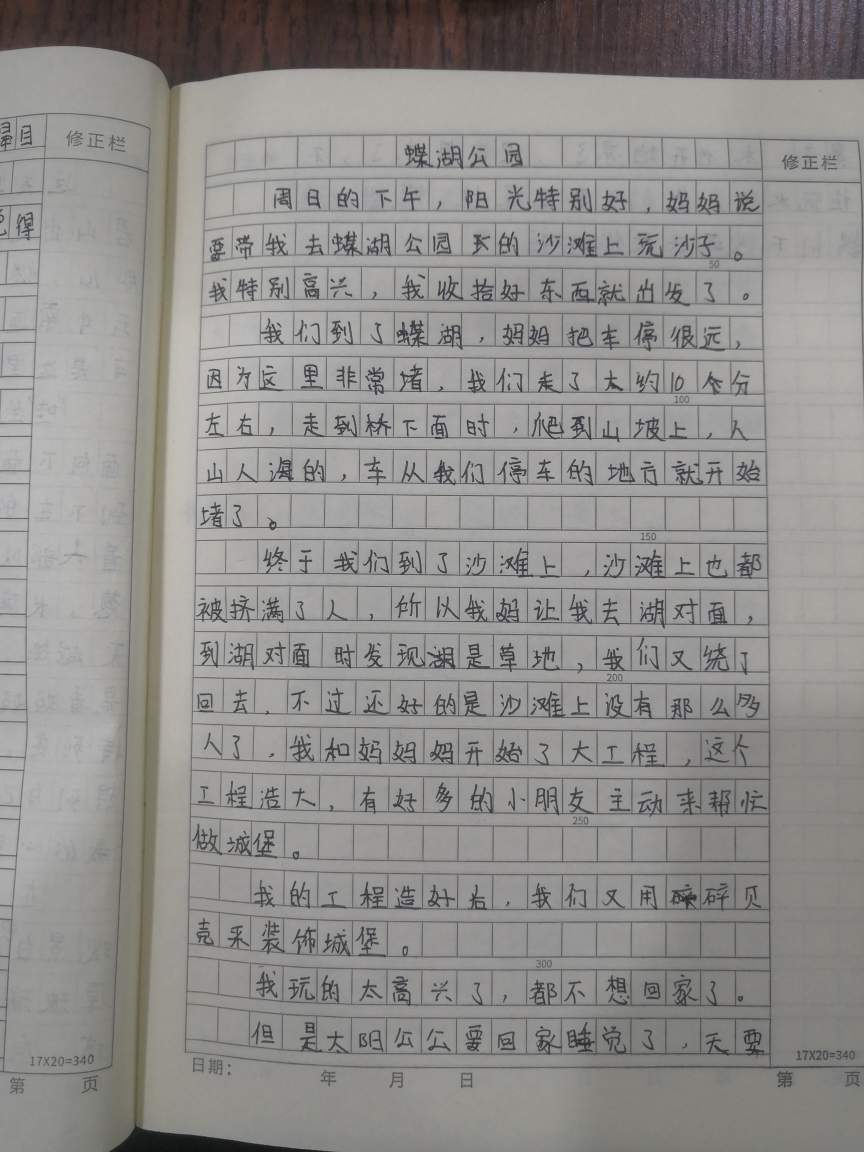 修正栏
得
蝶湖公园
修正栏
周日的下午，阳光特别好，妈妈说
要带我去蝶湖公园的沙滩上玩沙子。
50
我特别高兴，我收拾好东西就出发了。
我们到了蝶湖，妈妈把车停很远，
因为这里非常堵，我们走了大约10个分
100
左右，走到桥下面时，爬到山坡上，人
山人海的，车从我们停车的地方就开始
堵了。
150
终于我们到了沙滩上，沙滩上也都
被挤满了人，所以我妈让我去湖对面，
到湖对面时发现湖是草地，我们又绕了
200
回去，不过还好的是沙滩上没有那么多
人了，我和妈妈妈开始了大工程，这个
工程浩大，有好多的小朋友主动来帮忙
250
做城堡。
我的工程造好后，我们又用碎贝
壳来装饰城堡。
300
我玩的太高兴了，都不想回家了。
但是太阳公公要回家睡觉了，天要
17X20=340
17X20=340
第 页
日期： 年 月 日
第 页